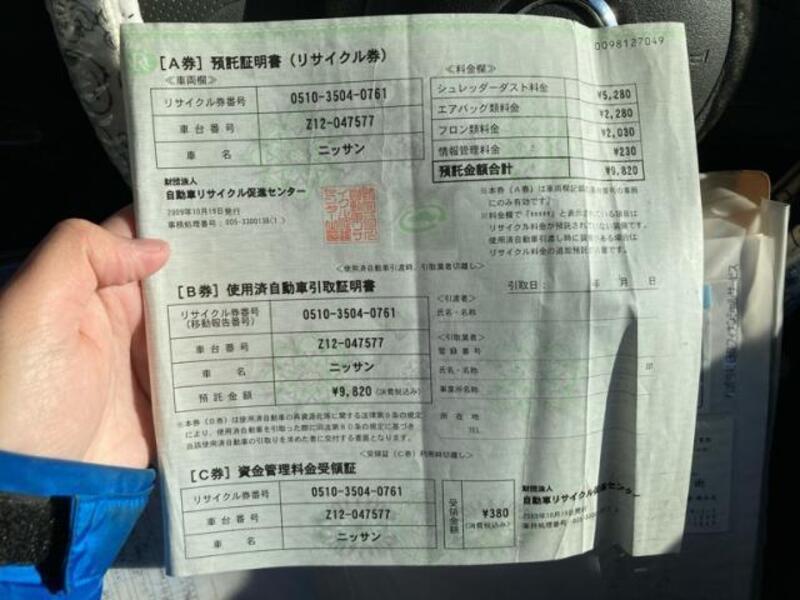 0098127049
[A券] 預託証明書 (リサイクル券)
≪車両欄≫
リサイクル券番号 0510-3504-0761
車台番号 Z12-047577
車名 ニッサン
≪料金欄≫
シュレッダーダスト料金 ¥5,280
エアバッグ類料金 ¥2,280
フロン類料金 ¥2,030
情報管理料金 ¥230
預託金額合計 ¥9,820
財団法人
自動車リサイクル促進センター
2009年10月19日発行
※本券(A券)は車両欄記載の車台番号の車両
にのみ有効です。
※料金欄で「*****」と表示されている項目は
リサイクル料金が預託されていない項目です。
使用済自動車引渡し時に装備がある場合は
リサイクル料金の追加預託が必要です。
<使用済自動車引渡時、引取業者切離し>
[B券] 使用済自動車引取証明書
引取日: 年 月 日
リサイクル券番号
(移動報告番号) 0510-3504-0761
車台番号 Z12-047577
車名 ニッサン
預託金額 ¥9,820 (消費税込み)
<引渡者>
氏名・名称
<引取業者>
登録番号
氏名・名称 印
事業所名称
所在地
TEL
※本券(B券)は使用済自動車の再資源化等に関する法律第9条の規定
により、使用済自動車を引取った際に同法第80条の規定に基づき
当該使用済自動車の引取りを求めた者に交付する書面となります。
<受領証(C券)利用時切離し>
[C券] 資金管理料金受領証
リサイクル券番号 0510-3504-0761
車台番号 Z12-047577
車名 ニッサン
受領金額 ¥380
(消費税込み)
財団法人
自動車リサイクル促進センター
2009年10月19日発行